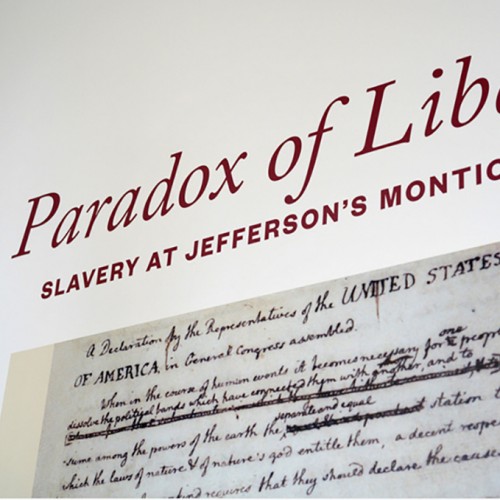 Paradox of Libe
SLAVERY AT JEFFERSON'S MONTIC
A Declaration by the Representatives of the UNITED STATES
OF AMERICA, in General Congress assembled.
When in the course of human events it becomes necessary for one peop
dissolve the political bands which have connected them with another, and to
separate and equal
sume among the powers of the earth the station t
which the laws of nature & of nature's god entitle them, a decent respe
requires that they should declare the cause